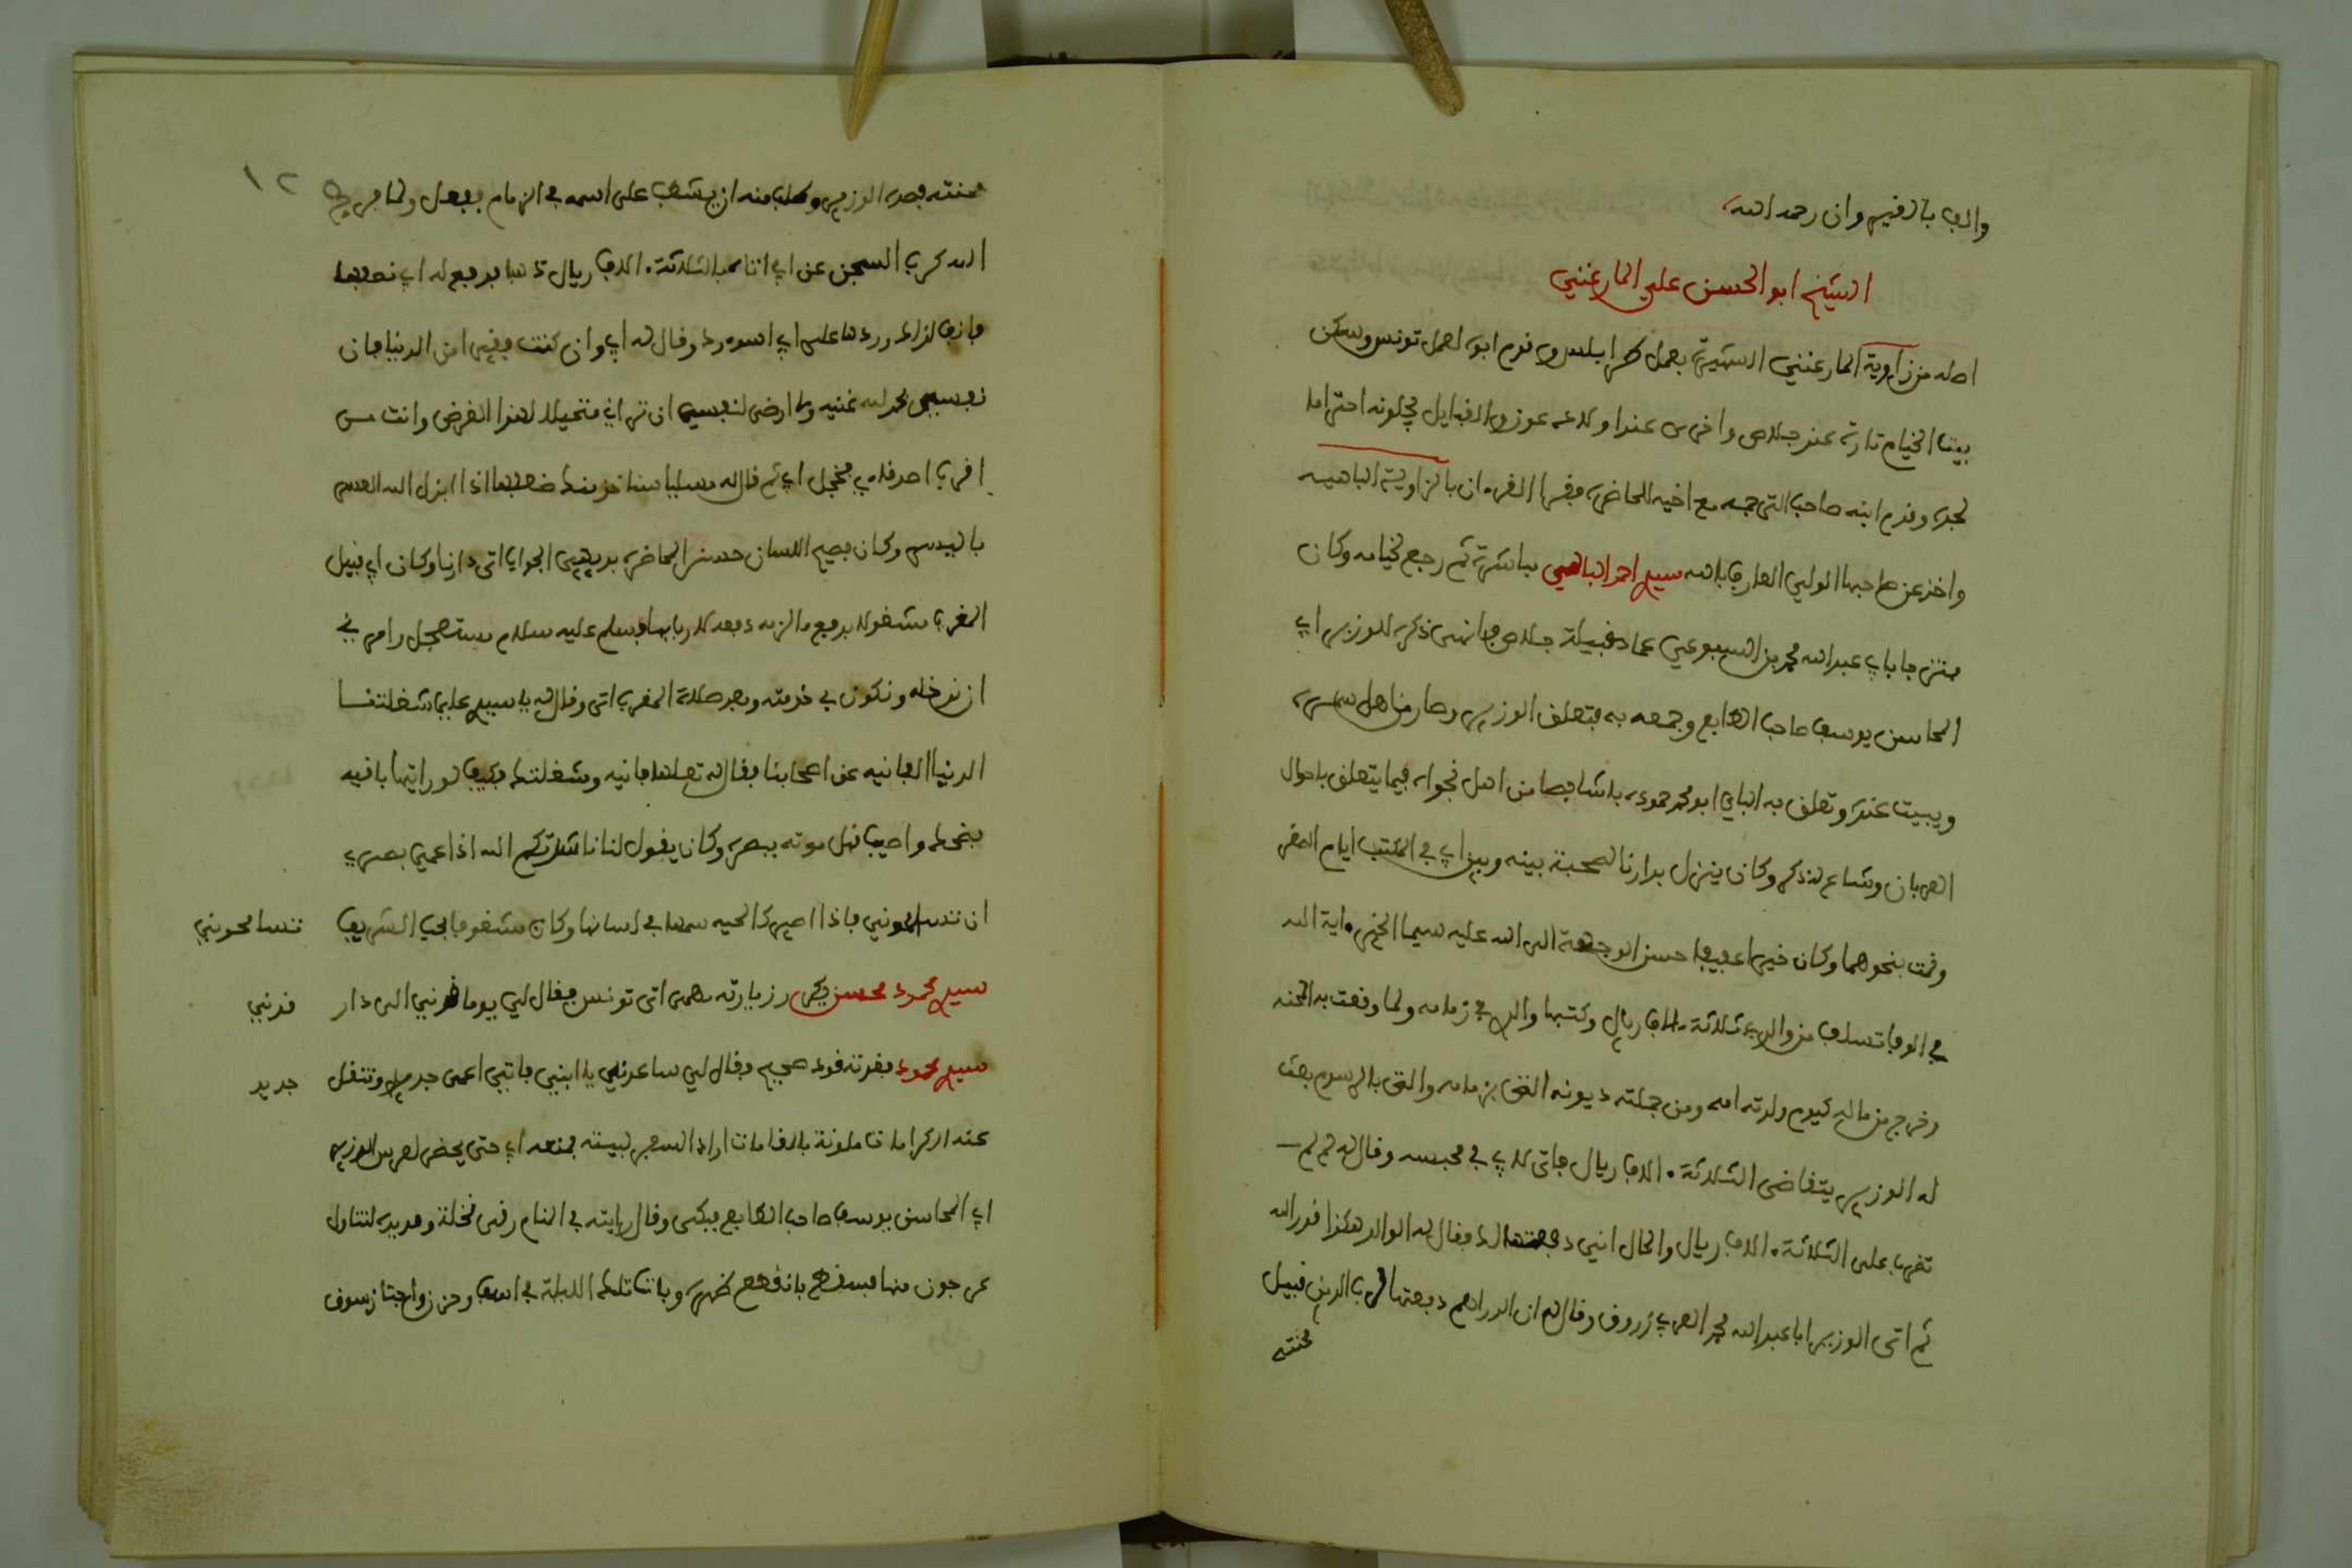 والف بالفيروان رحمه الله
الشيخ ابو الحسن علي المارغني
اصله من زاوية المارغني الشهيرة بعمل طرابلس وقدم ابوه لعمل تونس وسكن
بيت الخيام تارة عند جلاص واخرى عند اولاد عون والقبايل يجلونه احتراما
لجده وقدم ابنه صاحب الترجمة مع اخيه للحاضرة فقرا القرءان بالزاوية الباهية
واخذ عن صاحبها الولي العارف بالله سيدي احمد الباهي مباشرة ثم رجع لخيامه وكان
ممتزجا بابي عبد الله محمد بن السبوعي عماد قبيلة جلاص فانهى ذكره للوزير ابي
المحاسن يوسف صاحب الطابع وجمعه به فتعلق الوزير وصار من اهل سمره
ويبيت عنده وتعلق به الباي ابو محمد حموده باشا فصار من اهل نجواه فيما يتعلق باحوال
العربان وشاع لذلك ذكره وكان ينزل بدارنا لصحبة بينه وبين ابي في المكتب ايام الصغر
وقمت بنحوهما وكان خيرا عفيفا حسن الوجهة الى الله عليه سيما الخير ءاية الله
في الوفا تسلف من والدي ثلاثة ءالاف ريال وكتبها والدي في زمامه ولما وقعت به المحنة
وخرج من ماله كيوم ولدته امه ومن جملته ديونه التى بزمامه والتى بالرسوم بعث
له الوزير يتقاضى الثلاثة ءالاف ريال فاتى لابي في محبسه وقال له لم لم
تضرب على الثلاثة ءالاف ريال والحال انني دفعتها لك فقال له الوالد هكذا قدر الله
ثم اتى الوزير ابا عبد الله محمد العربي زروق وقال له ان الدراهم دفعتها لرب الدين قبيل
محنته
محنته فصدقه الوزير وطلب منه ان يشطب على اسمه في الزمام ففعل ولما فرج ١٢
الله كرب السجن عن ابي اتاه بالثلاثة ءالاف ريال ذهبا فدفع له ابي نصفها
فانف لذلك وردها على ابي اسوء رد وقال له ابي وان كنت فقيرا من الدنيا فان
نفسي بحمد الله غنية ولا ارضى لنفسي ان تراني متحيلا لهذا الغرض وانت من
اقرب اصدقاءي فخجل ابي ثم قال له مسليا سناخذ منك ضعفها اذا ابدل الله العسر
باليسر وكان فصيح اللسان حسن المحاضرة بديهي الجواب اتى دارنا وكان ابي قبيل
المغرب مشغولا بدفع مال لزمه دفعه لاربابها فسلم عليه سلام مستعجل وامرني
ان ندخله ونكون في خدمته وبعد صلاة المغرب اتى وقال له يا سيدي علي شغلتنا
الدنيا الفانية عن احبابنا فقال له تعلمها فانية وشغلتك فكيف لو رايتها باقية
فضحك واصيب قبل موته ببصره وكان يقول لنا ناشدتكم الله اذا عمي بصري
ان تتسامحوني فاذا الضرير كالحية سمها في لسانها وكان مشغوفا بحب الشريف تتسامحوني
سيدي محمود محسن يكرر زيارته مهما اتى تونس فقال لي يوما قدني الى دار قدني
سيدي محمود فقدته قود صحيح فقال لي ساعدني يا ابني فانني اعمى جديد وتنقل جديد
عنه كرامات ملونة بالمقامات اراد السفر لبيته فمنعه ابي حتى يحضر لعرس الوزير
ابي المحاسن يوسف صاحب الطابع فبكى وقال رايته في المنام رقى نخلة ومد يده لتناول
عرجون منها فسقط فانقطع ظهره وباتت تلك الليلة في اسف وحزن